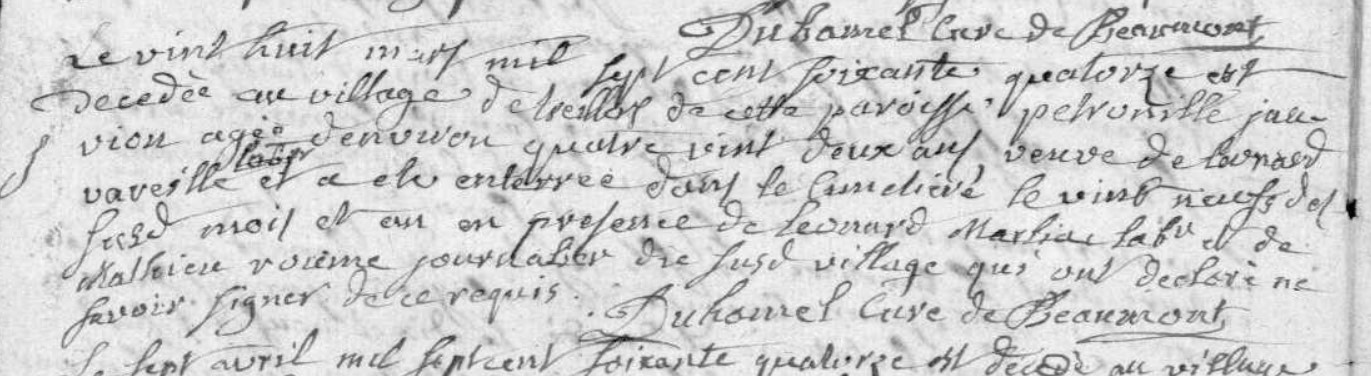 Duhamel Cure de Beaumont
Le vint huit mars mil sept cent soixante quatorze est
decedèe au village de treillos de cette paroisse petronille jau
vion ageè denviron quatre vint deux ans veuve de leonard
vareille labr et a ete enterrèe dans le cimetiere le vint neuf des
susd mois et an en presence de Leonard Martiac labr et de
Mathieu roume journalier du susd village qui ont declarè ne
savoir signer de ce requis. Duhamel Cure de Beaumont
le sept avril mil sept cent soixante quatorze est decedè au village